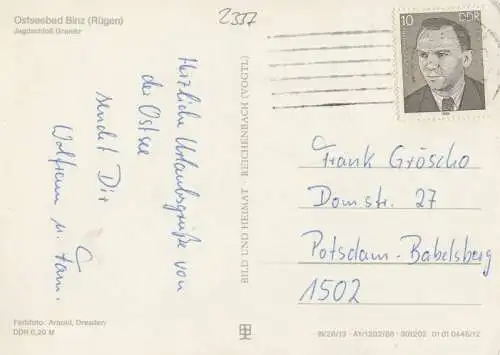 Ostseebad Binz (Rügen)
Jagdschloß Granitz
2337
10 DDR
Herzliche Urlaubsgrüße von
der Ostsee
sendet Dir
Wolfram u. Fam.
BILD UND HEIMAT REICHENBACH (VOGTL)
Frank Gröscho
Domstr. 27
Potsdam-Babelsberg
1502
Farbfoto: Arnold, Dresden
DDR 0,20 M
A1/1202/86 301202 01 01 0446/12